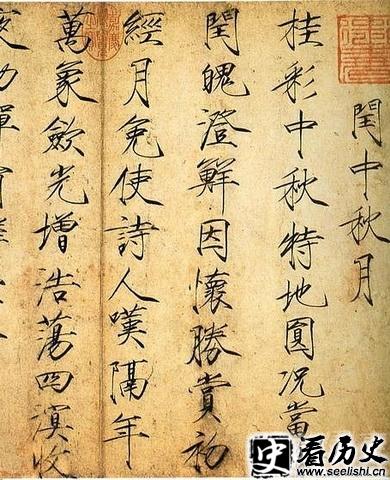 閏中秋月
桂彩中秋特地圓况當
閏魄澄鮮因懷勝賞初
經月免使詩人嘆隔年
萬象歛光增浩蕩四溟收
史 看历史
www.seelishi.cn